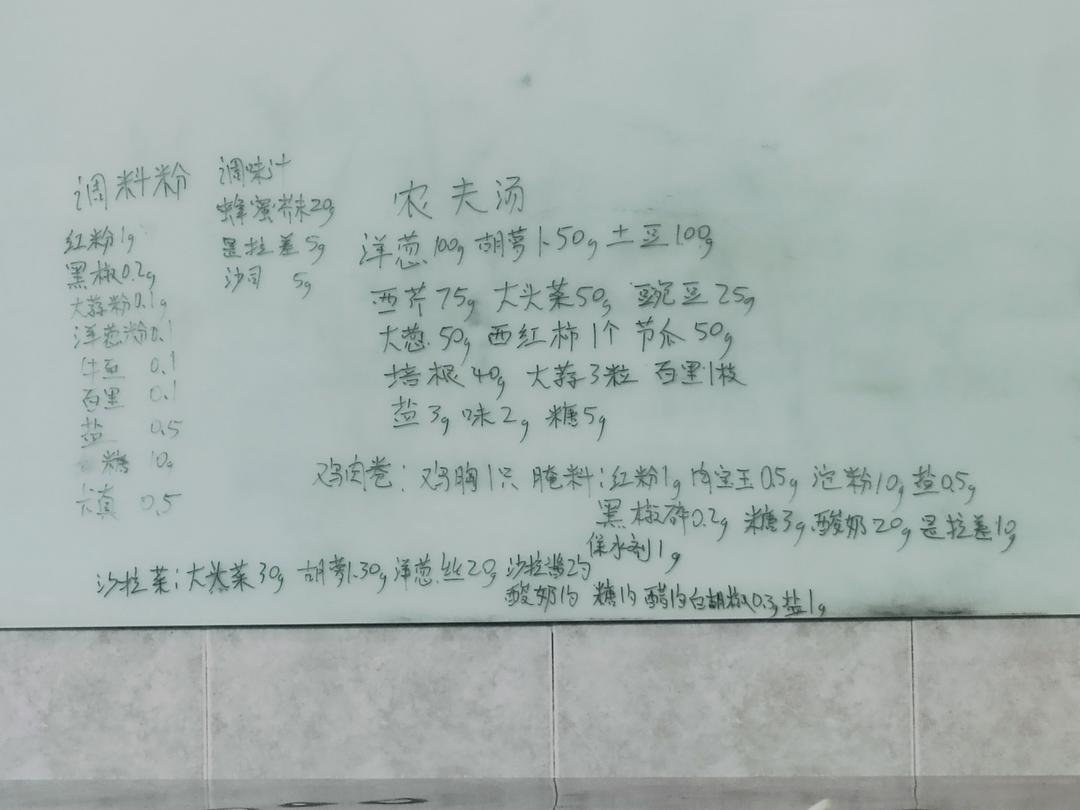 调料粉
红粉1g
黑椒0.2g
大蒜粉0.1g
洋葱粉0.1
牛至 0.1
百里 0.1
盐 0.5
糖 10g
0.5
调味汁
蜂蜜芥末20g
是拉差5g
沙司 5g
农夫汤
洋葱100g 胡萝卜50g 土豆100g
西芹75g 大头菜50g 豌豆25g
大葱50g 西红柿1个 节瓜50g
培根40g 大蒜3粒 百里1枝
盐3g 味2g 糖5g
鸡肉卷：鸡胸1只 腌料：红粉1g 肉宝王0.5g 淀粉10g 盐0.5g
黑椒碎0.2g 糖3g 酸奶20g 是拉差10g
保水剂1g
沙拉菜：大头菜30g 胡萝卜30g 洋葱丝20g 沙拉酱2勺
酸奶1勺 糖1勺 醋1勺 白胡椒0.3g 盐1g